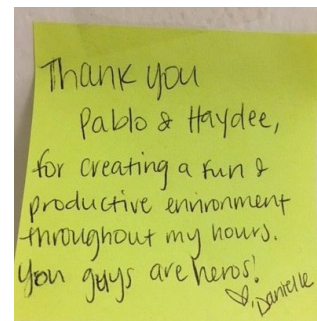 Thank you
Pablo & Haydee,
for creating a fun &
productive environment
throughout my hours.
You guys are heros!
♡, Danielle